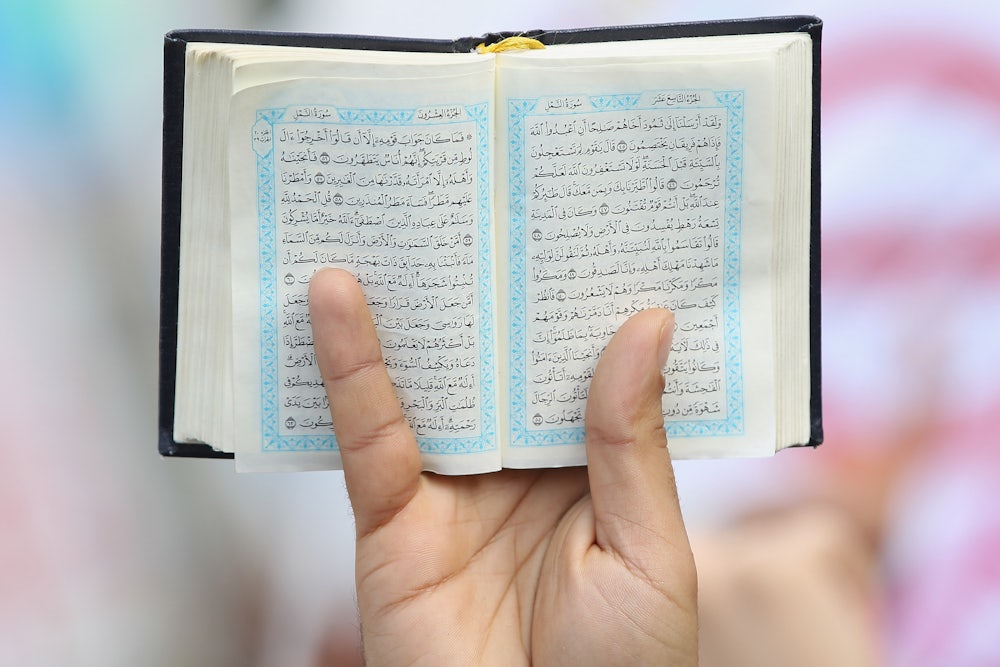 الجُزْءُ التَّاسِعَ عَشَرَ سُورَةُ النَّمْلِ
وَلَقَدْ أَرْسَلْنَا إِلَىٰ ثَمُودَ أَخَاهُمْ صَٰلِحًا أَنِ ٱعْبُدُوا۟ ٱللَّهَ
فَإِذَا هُمْ فَرِيقَانِ يَخْتَصِمُونَ ٤٥ قَالَ يَٰقَوْمِ لِمَ تَسْتَعْجِلُونَ
بِٱلسَّيِّئَةِ قَبْلَ ٱلْحَسَنَةِ لَوْلَا تَسْتَغْفِرُونَ ٱللَّهَ لَعَلَّكُمْ
تُرْحَمُونَ ٤٦ قَالُوا۟ ٱطَّيَّرْنَا بِكَ وَبِمَن مَّعَكَ قَالَ طَٰٓئِرُكُمْ
عِندَ ٱللَّهِ بَلْ أَنتُمْ قَوْمٌ تُفْتَنُونَ ٤٧ وَكَانَ فِى ٱلْمَدِينَةِ
تِسْعَةُ رَهْطٍ يُفْسِدُونَ فِى ٱلْأَرْضِ وَلَا يُصْلِحُونَ ٤٨
قَالُوا۟ تَقَاسَمُوا۟ بِٱللَّهِ لَنُبَيِّتَنَّهُۥ وَأَهْلَهُۥ ثُمَّ لَنَقُولَنَّ لِوَلِيِّهِۦ
مَا شَهِدْنَا مَهْلِكَ أَهْلِهِۦ وَإِنَّا لَصَٰدِقُونَ ٤٩ وَمَكَرُوا۟
مَكْرًا وَمَكَرْنَا مَكْرًا وَهُمْ لَا يَشْعُرُونَ ٥٠ فَٱنظُرْ
كَيْفَ كَانَ مَكْرِهِمْ أَنَّا دَمَّرْنَٰهُمْ وَقَوْمَهُمْ
أَجْمَعِينَ خَاوِيَةًۢ بِمَا ظَلَمُوٓا۟ إِنَّ
فِى ذَٰلِكَ لَءَايَةً وَأَنجَيْنَا ٱلَّذِينَ ءَامَنُوا۟
وَكَانُوا۟ يَتَّقُونَ لِقَوْمِهِۦٓ أَتَأْتُونَ
ٱلْفَٰحِشَةَ وَأَنتُمْ لَتَأْتُونَ ٱلرِّجَالَ
شَهْوَةً مِّن دُونِ تَجْهَلُونَ ٥٥
الجُزْءُ العِشْرُونَ سُورَةُ النَّمْلِ
۞ فَمَا كَانَ جَوَابَ قَوْمِهِۦٓ إِلَّآ أَن قَالُوٓا۟ أَخْرِجُوٓا۟ ءَالَ
لُوطٍ مِّن قَرْيَتِكُمْ إِنَّهُمْ أُنَاسٌ يَتَطَهَّرُونَ ٥٦ فَأَنجَيْنَٰهُ
وَأَهْلَهُۥٓ إِلَّا ٱمْرَأَتَهُۥ قَدَّرْنَٰهَا مِنَ ٱلْغَٰبِرِينَ ٥٧ وَأَمْطَرْنَا
عَلَيْهِم مَّطَرًا فَسَآءَ مَطَرُ ٱلْمُنذَرِينَ ٥٨ قُلِ ٱلْحَمْدُ لِلَّهِ
وَسَلَٰمٌ عَلَىٰ عِبَادِهِ ٱلَّذِينَ ٱصْطَفَىٰٓ ءَآللَّهُ خَيْرٌ أَمَّا يُشْرِكُونَ
٥٩ أَمَّنْ خَلَقَ ٱلسَّمَٰوَٰتِ وَٱلْأَرْضَ وَأَنزَلَ لَكُم مِّنَ ٱلسَّمَآءِ
مَآءً فَأَنۢبَتْنَا بِهِۦ حَدَآئِقَ ذَاتَ بَهْجَةٍ مَّا كَانَ لَكُمْ أَن
تُنۢبِتُوا۟ شَجَرَهَآ أَءِلَٰهٌ مَّعَ ٱللَّهِ بَلْ هُمْ ٦٠
أَمَّن جَعَلَ ٱلْأَرْضَ قَرَارًا وَجَعَلَ وَجَعَلَ
لَهَا رَوَٰسِىَ وَجَعَلَ بَيْنَ أَءِلَٰهٌ مَّعَ ٱللَّهِ
بَلْ أَكْثَرُهُمْ لَا يَعْلَمُونَ ٱلْمُضْطَرَّ إِذَا
دَعَاهُ وَيَكْشِفُ ٱلسُّوٓءَ ٱلْأَرْضِ
أَءِلَٰهٌ مَّعَ ٱللَّهِ قَلِيلًا مَّا يَهْدِيكُمْ فِى
ظُلُمَٰتِ ٱلْبَرِّ وَٱلْبَحْرِ بَيْنَ يَدَىْ
رَحْمَتِهِۦٓ أَءِلَٰهٌ مَّعَ ٱللَّهِ ٦٣